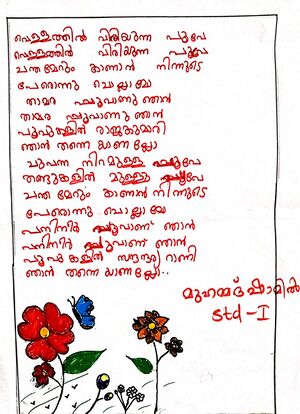 വെള്ളത്തിൽ വിരിയുന്ന പൂവേ
വെള്ളത്തിൽ വിരിയുന്ന പൂവേ
ചന്തമേറും കാണാൻ നിന്നുടെ
പേരൊന്നു ചൊല്ലാമോ
താമര പൂവാണു ഞാൻ
താമര പൂവാണു ഞാൻ
പൂക്കളിൽ രാജകുമാരി
ഞാൻ തന്നെ യാണല്ലോ
ചുവന്ന നിറമുള്ള പൂവേ
തണ്ടുകളിൽ മുള്ളുള്ള പൂവേ
ചന്തമേറും കാണാൻ നിന്നുടെ
പേരൊന്നു ചൊല്ലാമോ
പനിനീർ പൂവാണ് ഞാൻ
പനിനീർ പൂവാണ് ഞാൻ
പൂക്കളിൽ റാണി
ഞാൻ തന്നെ യാണല്ലോ..
മുഹമ്മദ് ഷാമിൽ
Std - I